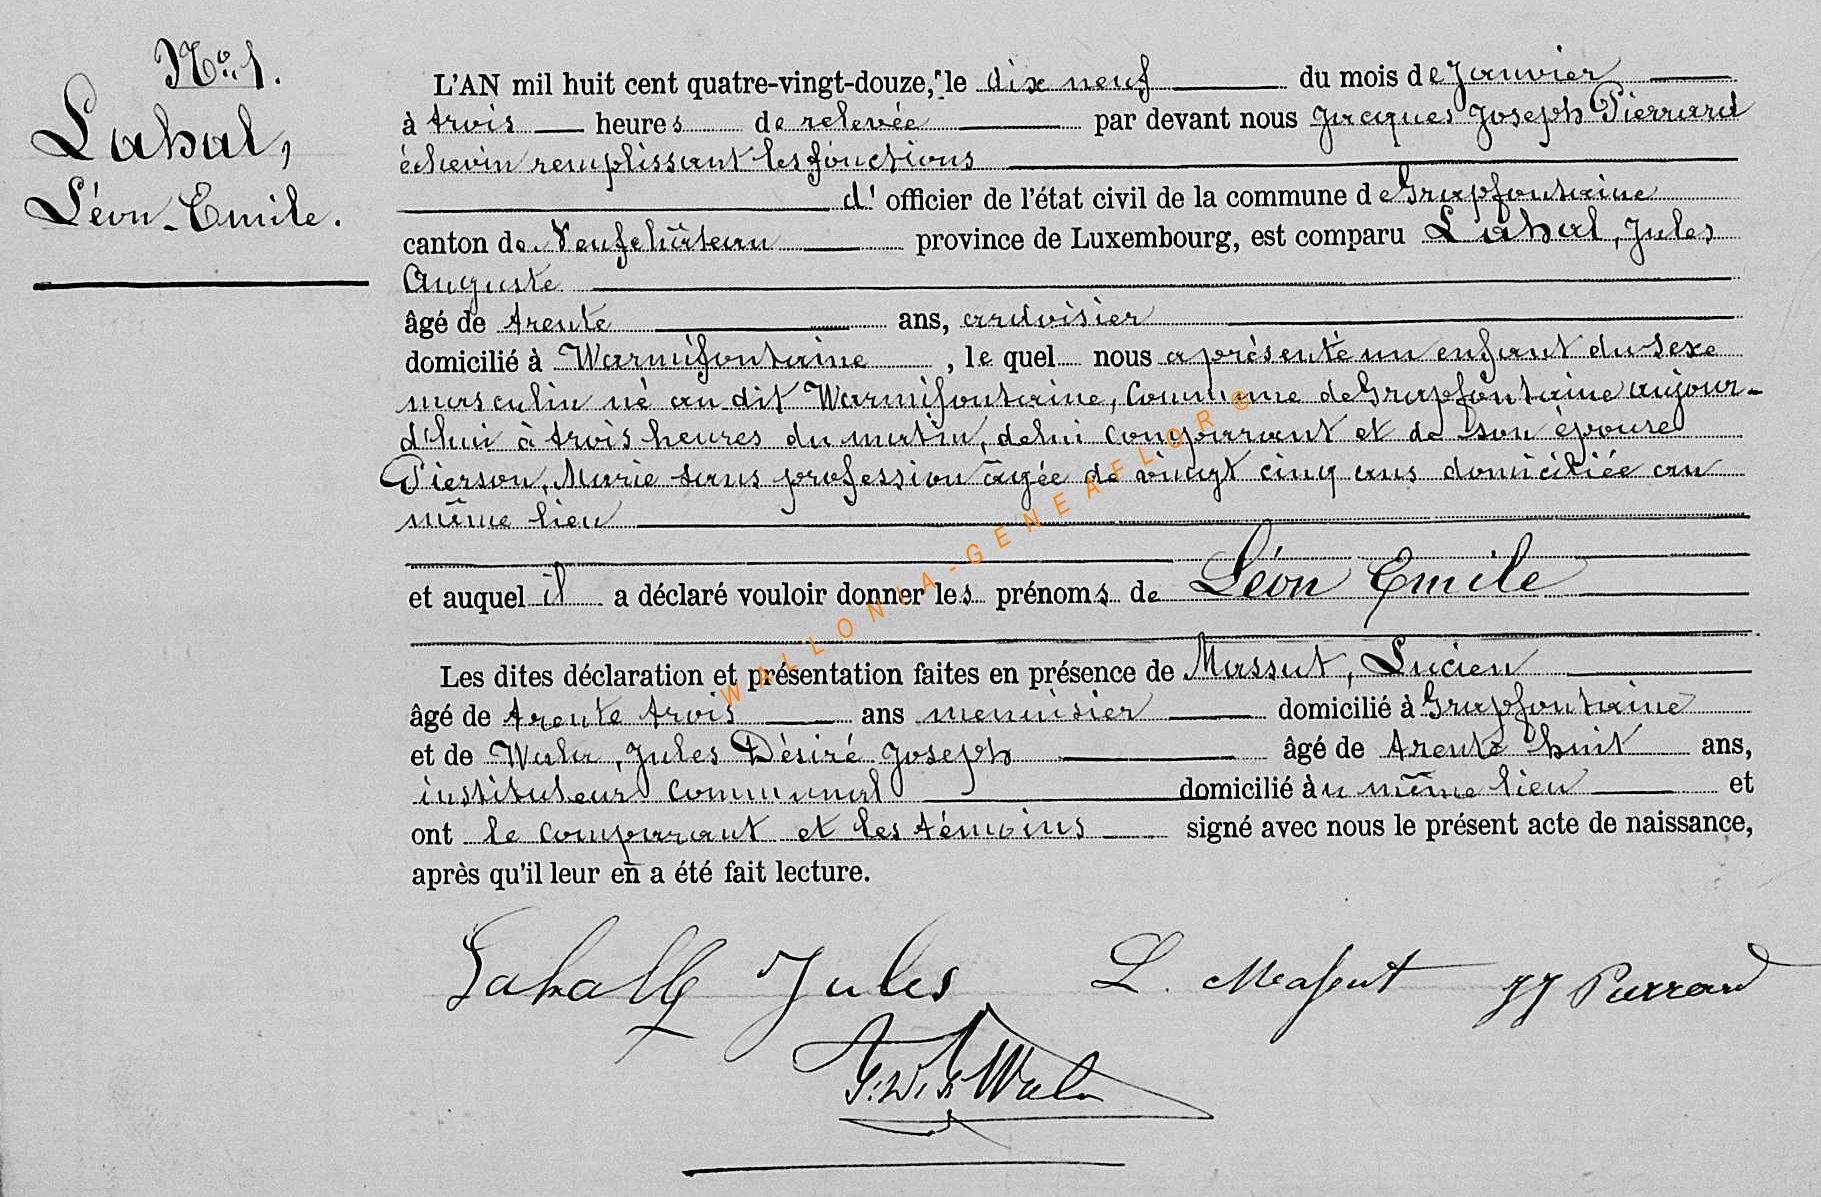 N° 1.
Lahal,
Léon-Emile.
L'AN mil huit cent quatre-vingt-douze, le dix neuf du mois de Janvier
à trois heures de relevée par devant nous Jacques Joseph Pierrard
échevin remplissant les fonctions
d' officier de l'état civil de la commune de Grapfontaine
canton de Neufchâteau province de Luxembourg, est comparu Lahal, Jules
Auguste
âgé de trente ans, ardoisier
domicilié à Warmifontaine, le quel nous a présenté un enfant du sexe
masculin né au dit Warmifontaine, Commune de Grapfontaine aujour-
d'hui à trois heures du matin, de lui comparant et de son épouse
Pierson, Marie sans profession âgée de vingt cinq ans domiciliée au
même lieu
et auquel il a déclaré vouloir donner les prénoms de Léon Emile
Les dites déclaration et présentation faites en présence de Massut, Lucien
âgé de trente trois ans menuisier domicilié à Grapfontaine
et de Wala, Jules Désiré Joseph âgé de trente huit ans,
instituteur communal domicilié au même lieu et
ont le comparant et les témoins signé avec nous le présent acte de naissance,
après qu'il leur en a été fait lecture.
Lahalle Jules L. Massut JJ Pierrard
Wala
WALLONIA-GENEAFLOR®